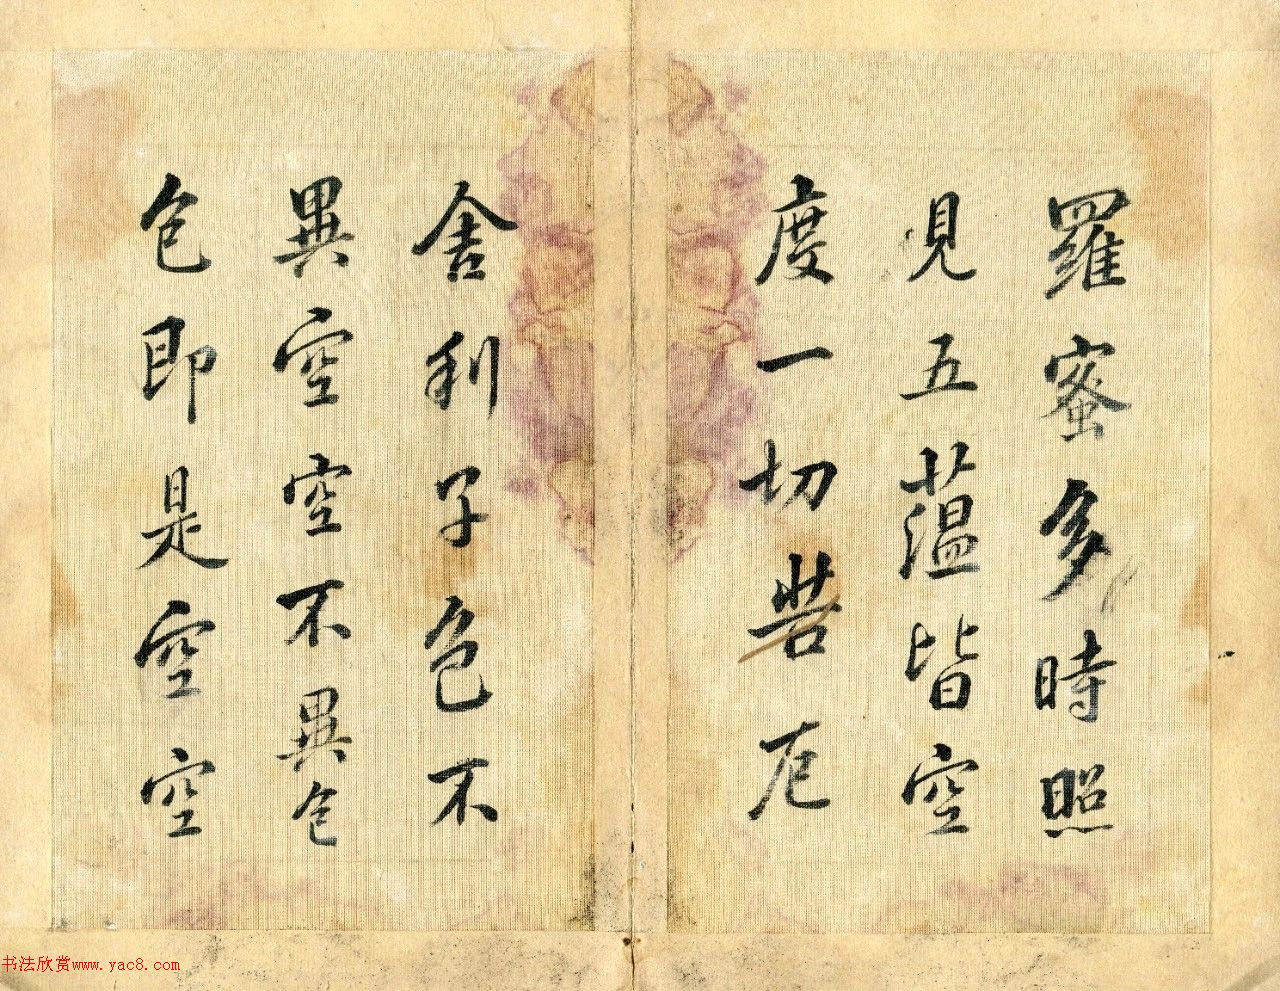 羅蜜多時照
見五蘊皆空
度一切苦厄
舍利子色不
異空空不異色
色即是空空
书法欣赏www.yac8.com